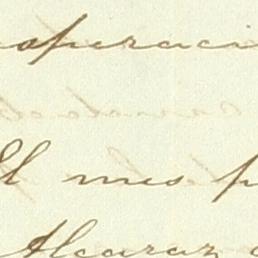 operaci
El mes p
Alcaraz